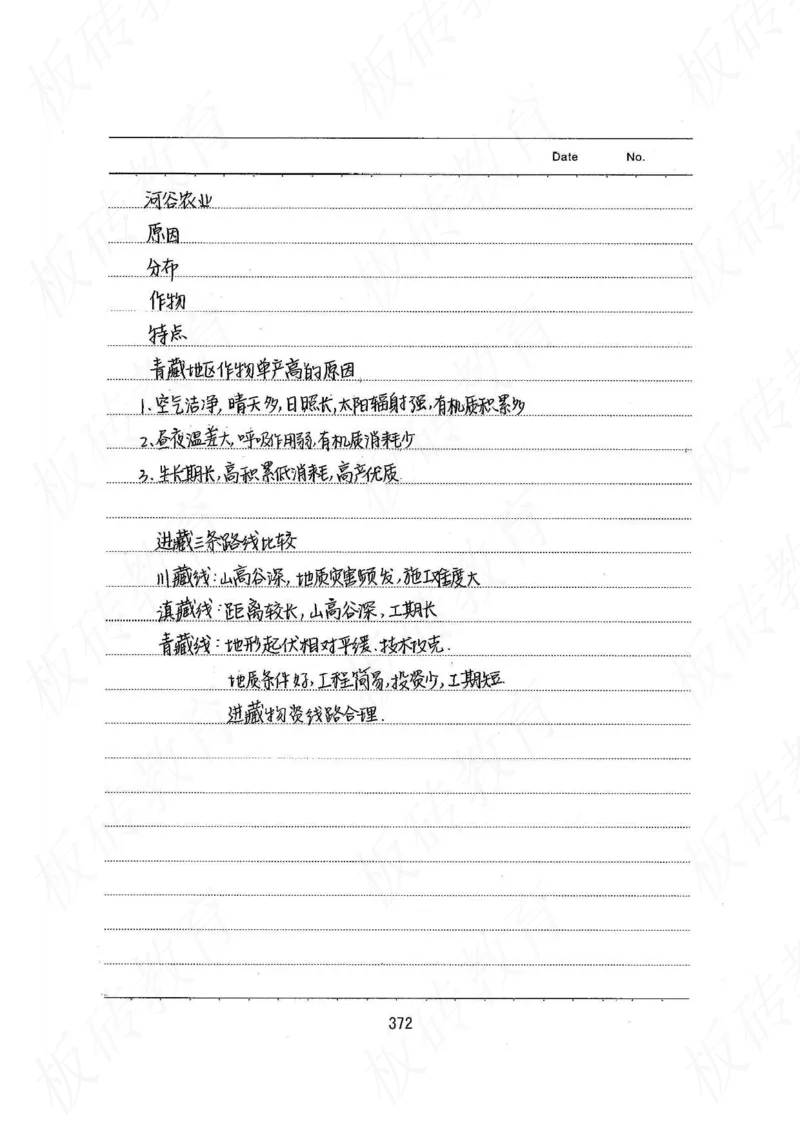 Date No.
河谷农业
原因
分布
作物
特点
青藏地区作物单产高的原因
1、空气洁净,晴天多,日照长,太阳辐射强,有机质积累多
2、昼夜温差大,呼吸作用弱,有机质消耗少
3、生长期长,高积累低消耗,高产优质
进藏三条路线比较
川藏线:山高谷深,地质灾害频发,施工难度大
滇藏线:距离较长,山高谷深,工期长
青藏线:地形起伏相对平缓.技术攻克.
地质条件好,工程简易,投资少,工期短
进藏物资线路合理.
372
板砖教育